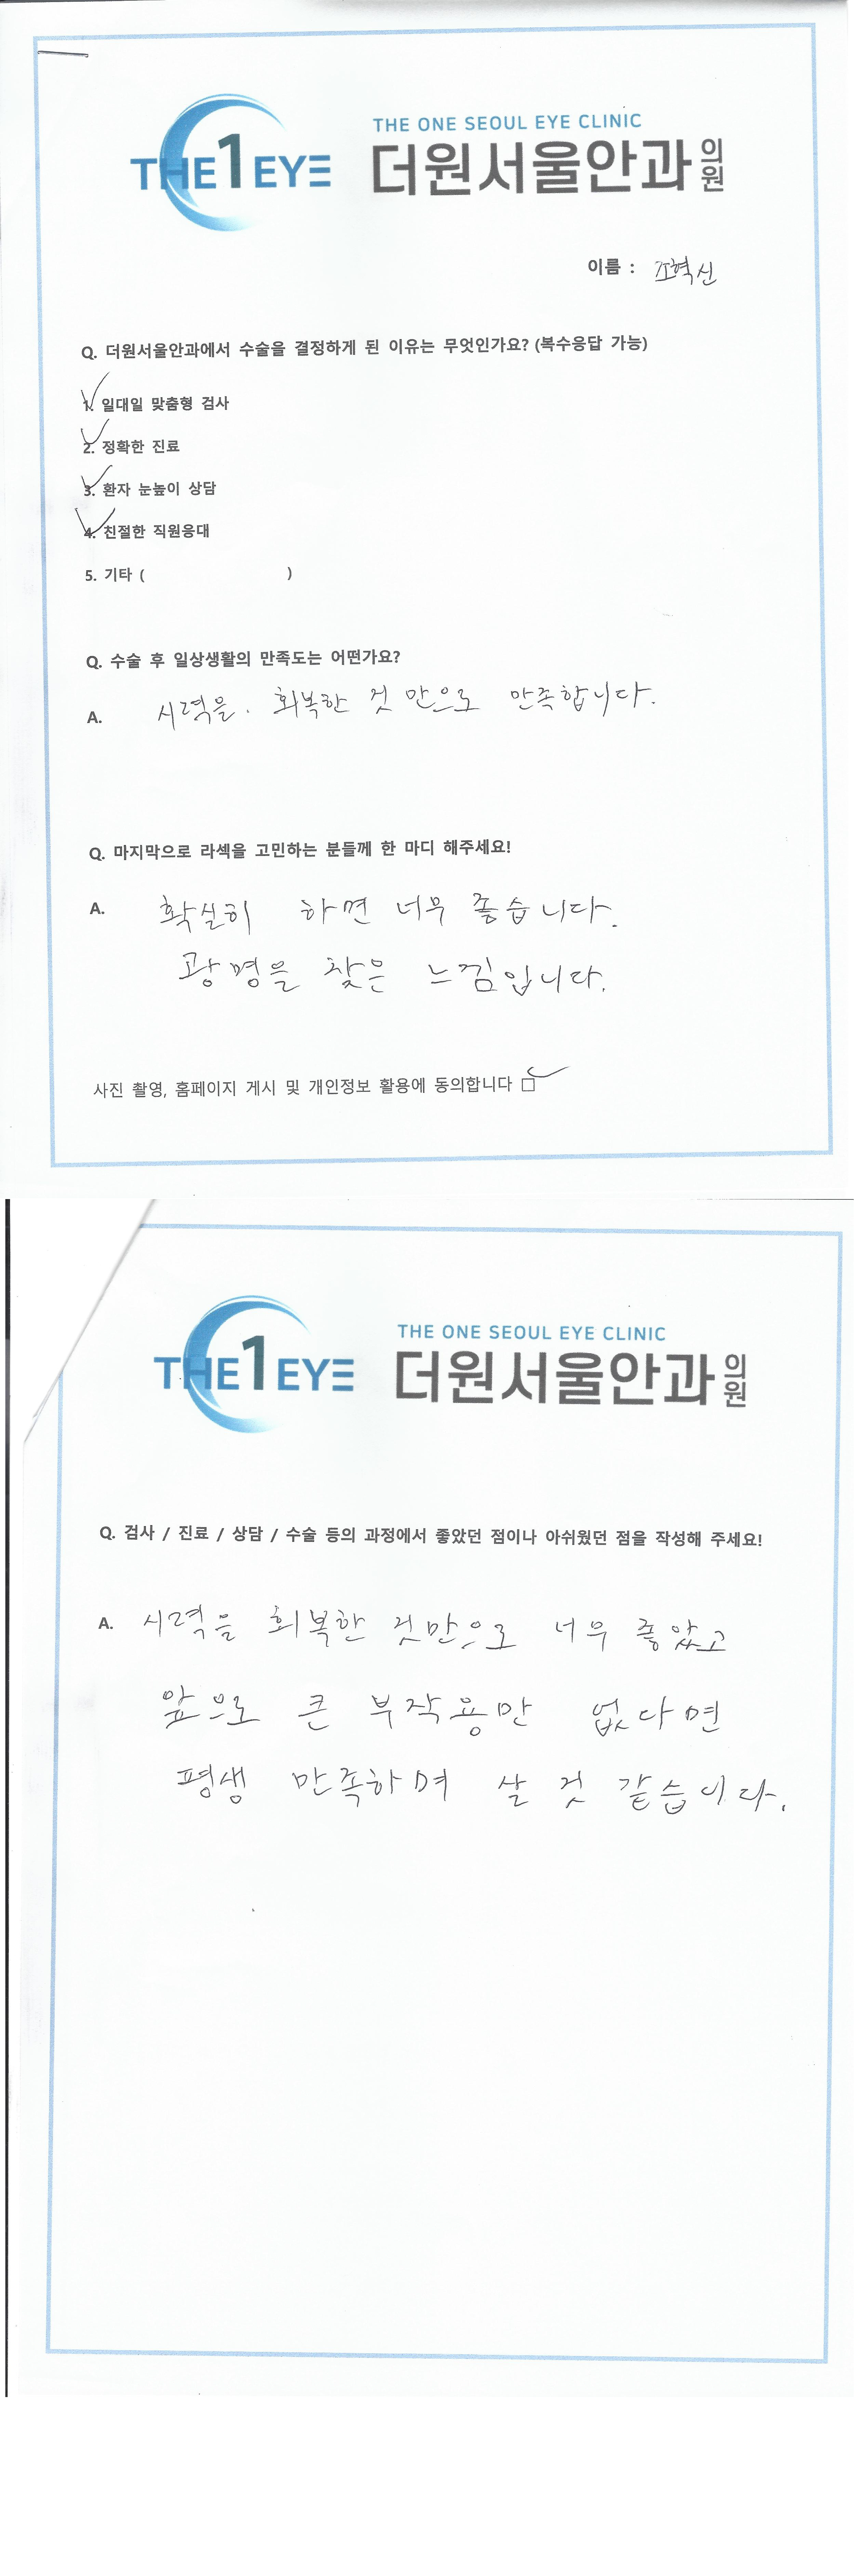 THE 1 EYE
THE ONE SEOUL EYE CLINIC
더원서울안과의원
이름 : 조혁신
Q. 더원서울안과에서 수술을 결정하게 된 이유는 무엇인가요? (복수응답 가능)
1. 일대일 맞춤형 검사
2. 정확한 진료
3. 환자 눈높이 상담
4. 친절한 직원응대
5. 기타 ( )
Q. 수술 후 일상생활의 만족도는 어떤가요?
A. 시력을. 회복한 것 만으로 만족합니다.
Q. 마지막으로 라섹을 고민하는 분들께 한 마디 해주세요!
A. 확실히 하면 너무 좋습니다.
광명을 찾은 느낌입니다.
사진 촬영, 홈페이지 게시 및 개인정보 활용에 동의합니다 ☐
THE 1 EYE
THE ONE SEOUL EYE CLINIC
더원서울안과의원
Q. 검사 / 진료 / 상담 / 수술 등의 과정에서 좋았던 점이나 아쉬웠던 점을 작성해 주세요!
A. 시력을 회복한 것만으로 너무 좋았고
앞으로 큰 부작용만 없다면
평생 만족하며 살 것 같습니다.